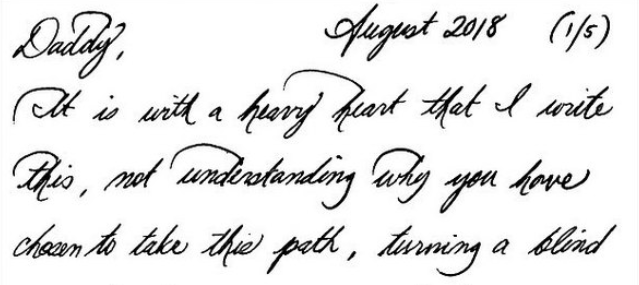 Daddy, August 2018 (1/5)
It is with a heavy heart that I write
this, not understanding why you have
chosen to take this path, turning a blind